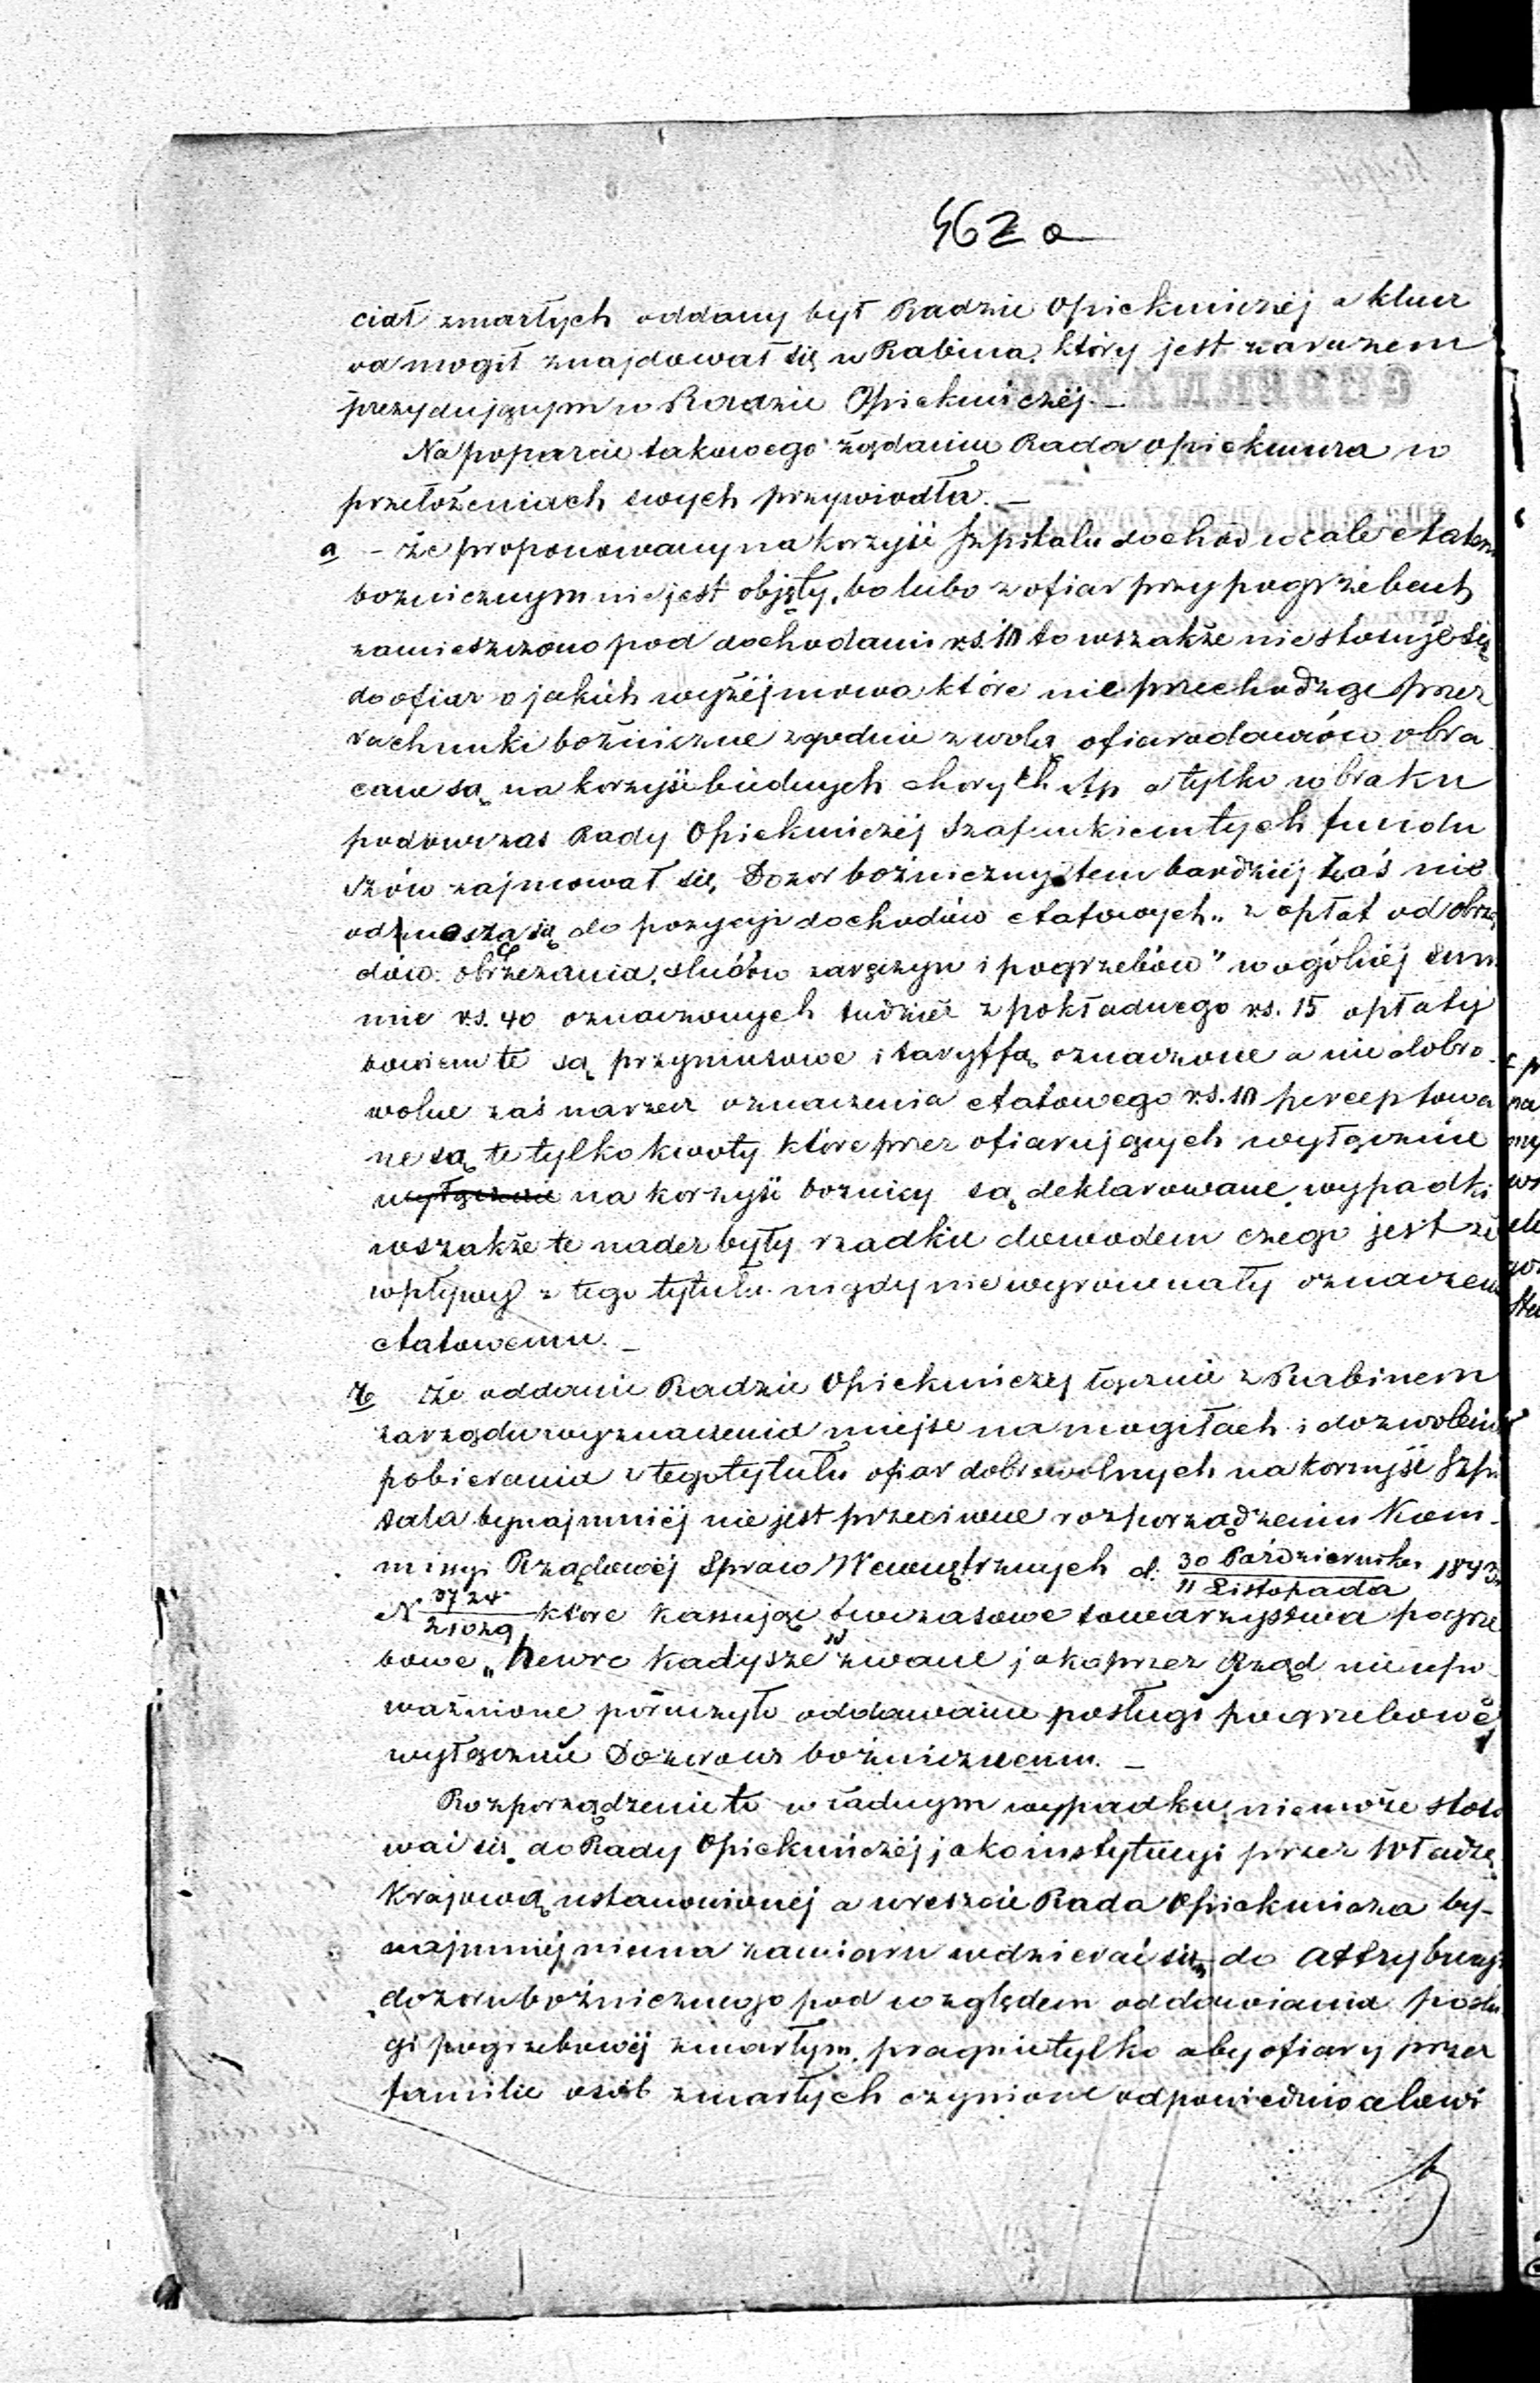 462 a
ciał zmarłych oddany był Radzie Opiekuńczéj a klucz
od mogił znajdował się u Rabina, który jest zarazem
prezydującym w Radzie Opiekuńczéj. —
Na poparcie takowego żądania Rada Opiekuńcza w
przełożeniach swych przywiodła. —
a - Że proponowany na korzyść Szpitalu dochód wcale etatem
bożnicznym nie jest objęty, bo lubo z ofiar przy pogrzebach
zamieszczono pod dochodami r.s. 10 to wszakże nie stosuje się
do ofiar o jakich wyżéj mowa które nie przechodząc przez
rachunki bożniczne zgodnie z wolą ofiarodawców obra
cane są na korzyść biednych chorych itp a tylko w braku
podówczas Rady Opiekuńczéj szafunkiem tych fundu
szów zajmował się Dozór bożniczny, tem bardziéj zaś nie
odnoszą się do pozycyi dochodów etatowych „z opłat od obrzę
dów obrzezania, ślubów zaręczyn i pogrzebów" w ogólnéj sum
mie r.s. 40 oznaczonych tudzież z pokładnego r.s. 15 opłaty
bowiem te są przymusowe i taryffą oznaczone a nie dobro-
wolne zaś na rzecz oznaczenia etatowego r.s. 10 perceptowa
ne są te tylko kwoty które przez ofiarujących wyłącznie
wyłącznie na korzyść bożnicy są deklarowane, wypadki
wszakże te nader były rzadkie dowodem czego jest że
wpływy z tego tytułu nigdy nie wyrównały oznaczeniu
etatowemu. —
b Że oddanie Radzie Opiekuńczéj łącznie z Rabinem
zarządu wyznaczenia miejsc na mogiłach i dozwolenie
pobierania z tego tytułu ofiar dobrowolnych na korzyść Szpi
tala bynajmniéj nie jest przeciwne rozporządzeniu Kom-
missyi Rządowéj Spraw Wewnętrznych d. 30 Października / 11 Listopada 1843
N 3724 / 21029 które kassując ówczasowe towarzystwa pogrze
bowe „Hewre Kadysze" zwane jako przez Rząd nieupo-
ważnione poruczyło oddawanie posługi pogrzebowéj
wyłącznie Dozorowi bożnicznemu. —
Rozporządzenie to w żadnym wypadku nie może stoso
wać się do Rady Opiekuńczéj jako instytucyi przez Władzę
Krajową ustanowionéj a wreszcie Rada Opiekuńcza by-
najmniéj niema zamiaru wdzierać się do attrybucyi
dozoru bożnicznego pod względem oddawania posłu
gi pogrzebowéj zmarłym, pragnie tylko aby ofiary przez
familie osób zmarłych czynione odpowiednio celowi